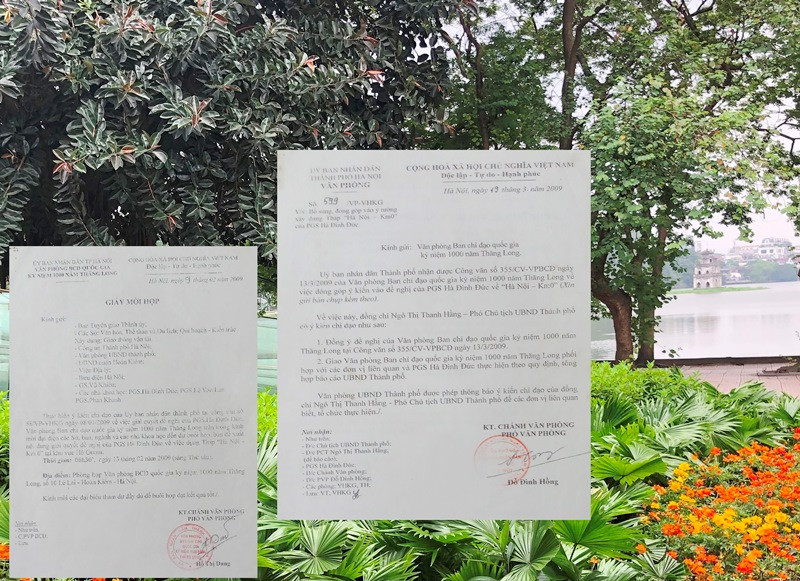 ỦY BAN NHÂN DÂN TP HÀ NỘI
VĂN PHÒNG BCĐ QUỐC GIA
KỶ NIỆM 1000 NĂM THĂNG LONG
CỘNG HOÀ XÃ HỘI CHỦ NGHĨA VIỆT NAM
Độc lập - Tự do - Hạnh phúc
Hà Nội, ngày 9 tháng 02 năm 2009
GIẤY MỜI HỌP
Kính gửi:
- Ban Tuyên giáo Thành ủy;
- Các Sở: Văn hóa, Thể thao và Du lịch, Quy hoạch - Kiến trúc,
Xây dựng, Giao thông vận tải
- Công an Thành phố Hà Nội;
- Văn phòng UBND thành phố;
- UBND quận Hoàn Kiếm;
- Viện Địa lý;
- Bưu điện Hà Nội;
- Các nhà khoa học: PGS.Hà Đình Đức, PGS.Lê Văn Lan,
PGS.Phan Khanh
Thời gian: tháng 02 năm 2009
Địa điểm: Phòng họp Văn phòng BCĐ quốc gia kỷ niệm 1000 năm Thăng
Long, số 10 Lê Lai - Hoàn Kiếm - Hà Nội.
Kính mời các đại biểu tham dự đầy đủ để buổi họp đạt kết quả tốt./.
Nơi nhận:
- Như trên;
- Lưu
KT.CHÁNH VĂN PHÒNG
PHÓ VĂN PHÒNG
Hồ Thị Dung
ỦY BAN NHÂN DÂN
THÀNH PHỐ HÀ NỘI
VĂN PHÒNG
CỘNG HOÀ XÃ HỘI CHỦ NGHĨA VIỆT NAM
Độc lập - Tự do - Hạnh phúc
Số: /VP-VHKG
Hà Nội, ngày 19 tháng 3 năm 2009
V/v Bổ sung, đóng góp vào ý tưởng
xây dựng Tháp "Hà Nội - Km0"
của PGS Hà Đình Đức.
Kính gửi: Văn phòng Ban chỉ đạo quốc gia
kỷ niệm 1000 năm Thăng Long.
Uỷ ban nhân dân Thành phố nhận được Công văn số 355/CV-VPBCĐ ngày
13/3/2009 của Văn phòng Ban chỉ đạo quốc gia kỷ niệm 1000 năm Thăng Long về
việc đóng góp ý kiến vào đề nghị của PGS Hà Đình Đức về "Hà Nội - Km0" (Xin
gửi bản chụp kèm theo).
Về việc này, đồng chí Ngô Thị Thanh Hằng - Phó Chủ tịch UBND Thành phố
có ý kiến chỉ đạo như sau:
1. Đồng ý đề nghị của Văn phòng Ban chỉ đạo quốc gia kỷ niệm 1000 năm
Thăng Long tại Công văn số 355/CV-VPBCĐ ngày 13/3/2009.
2. Giao Văn phòng Ban chỉ đạo quốc gia kỷ niệm 1000 năm Thăng Long phối
hợp với các đơn vị liên quan và PGS Hà Đình Đức thực hiện theo quy định, tổng
hợp báo cáo UBND Thành phố.
Văn phòng UBND Thành phố được phép thông báo ý kiến chỉ đạo của đồng
chí Ngô Thị Thanh Hằng - Phó Chủ tịch UBND Thành phố để các đơn vị liên quan
biết, tổ chức thực hiện./.
Nơi nhận:
- Như trên;
- Đ/c Chủ tịch UBND Thành phố;
- Đ/c PCT Ngô Thị Thanh Hằng;
(để báo cáo)
- PGS Hà Đình Đức;
- Đ/c Chánh Văn phòng;
- Đ/c PVP Đỗ Đình Hồng;
- Các phòng: VHKG, TH;
- Lưu: VT, VHKG
KT. CHÁNH VĂN PHÒNG
PHÓ VĂN PHÒNG
Đỗ Đình Hồng